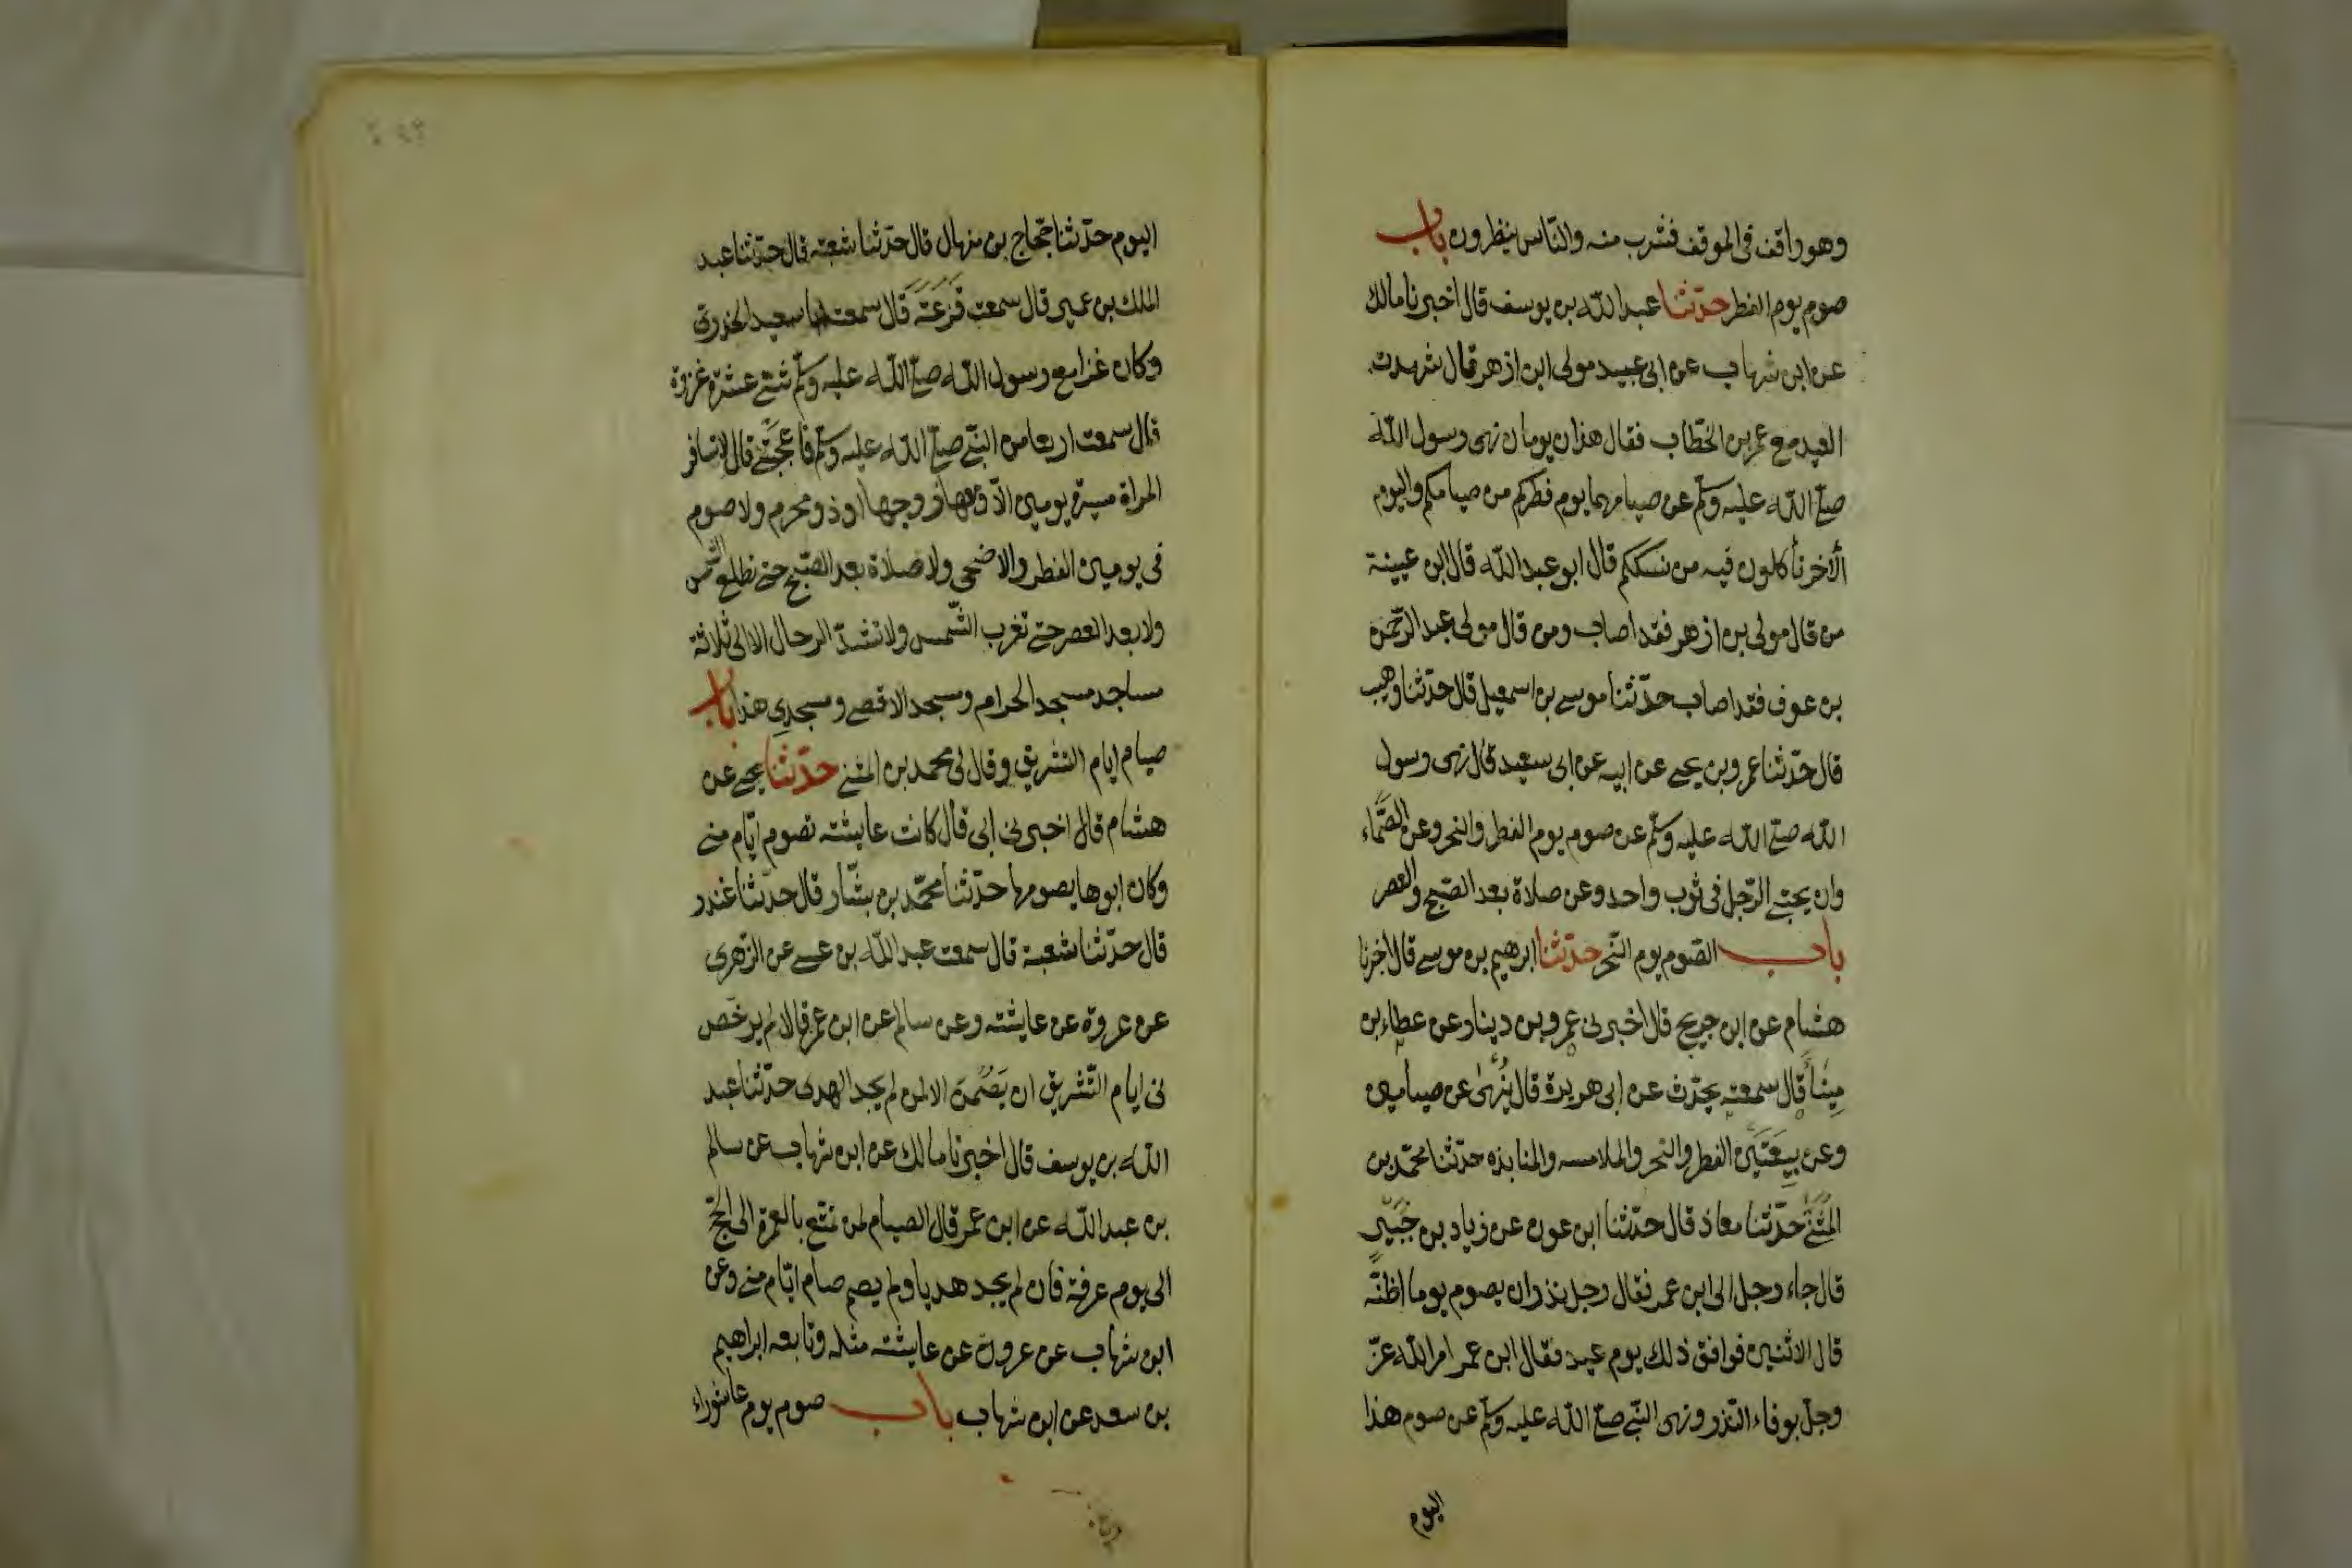 وهو واقف فى الموقف فشرب منه والنّاس ينظرون باب
صوم يوم الفطر حدّثنا عبد اللّه بن يوسف قال اخبرنا مالك
عن ابن شهاب عن ابى عبيد مولى ابن ازهر قال شهدت
العيد مع عمر بن الخطّاب فقال هذان يومان نهى رسول اللّه
صلّى اللّه عليه وسلّم عن صيامهما يوم فطركم من صيامكم واليوم
الآخر تأكلون فيه من نسككم قال ابو عبد اللّه قال ابن عيينة
من قال مولى بن ازهر فقد اصاب ومن قال مولى عبد الرّحمن
بن عوف فقد اصاب حدّثنا موسى بن اسمعيل قال حدّثنا وهيب
قال حدّثنا عمرو بن يحيى عن ابيه عن ابى سعيد قال نهى رسول
اللّه صلّى اللّه عليه وسلّم عن صوم يوم الفطر والنحر وعن الصّمّاء
وان يحتبى الرّجل فى ثوب واحد وعن صلاة بعد الصّبح والعصر
باب الصّوم يوم النّحر حدّثنا ابرهيم بن موسى قال اخبرنا
هشام عن ابن جريج قال اخبرنى عمرو بن دينار عن عطاء بن
مِينَا قال سمعته يحدّث عن ابى هريرة قال يُنْهَى عن صيامين
وعن بيعَتَين الفطر والنحر والملامسه والمنابذه حدّثنا محمّد بن
المُثَنَّى حدّثنا معاذ قال حدّثنا ابن عون عن زياد بن جُبَيْرٍ
قال جاء رجل الى ابن عمر فقال رجل نذر ان يصوم يوما اظنّه
قال الاثنين فوافق ذلك يوم عيد فقال ابن عمر امر اللّه عزّ
وجلّ بوفاء النّذر ونهى النّبى صلّى اللّه عليه وسلّم عن صوم هذا
اليوم
اليوم حدّثنا حجّاج بن منهال قال حدّثنا شعبته قال حدّثنا عبد
الملك بن عمير قال سمعت قَزَعَةَ قال سمعت ابا سعيد الخدرى
وكان غزا مع رسول اللّه صلّى اللّه عليه وسلّم ثنتى عشرة غزوة
قال سمعت اربعا من النّبى صلّى اللّه عليه وسلّم فاعجبننى قال لا تسافر
المراة مسيرة يومين الاّ ومعها زوجها او ذو محرم ولا صوم
فى يومين الفطر والاضحى ولا صلاة بعد الصّبح حتى تطلع الشّمس
ولا بعد العصر حتى تغرب الشّمس ولا تشدّ الرحال الا الى ثلاثة
مساجد مسجد الحرام ومسجد الاقصى ومسجدى هذا باب
صيام ايام التشريق وقال لى محمد بن المثنى حدّثنا يحيى عن
هشام قال اخبرنى ابى قال كانت عايشته تصوم ايّام منى
وكان ابوها يصومها حدّثنا محمّد بن بشّار قال حدّثنا غندر
قال حدّثنا شعبة قال سمعت عبد اللّه بن عيسى عن الزّهرى
عن عروة عن عايشته وعن سالم عن ابن عمر قالا لم يرخّص
فى ايام التّشريق ان يَصُمنَ الا لمن لم يجد الهدى حدّثنا عبد
اللّه بن يوسف قال اخبرنا مالك عن ابن شهاب عن سالم
بن عبد اللّه عن ابن عمر قال الصيام لمن تمتّع بالعمرة الى الحجّ
الى يوم عرفة فان لم يجد هديا ولم يصم صام ايّام منى وعن
ابن شهاب عن عروة عن عايشته مثله وتابعه ابراهيم
بن سعد عن ابن شهاب باب صوم يوم عاشوراء